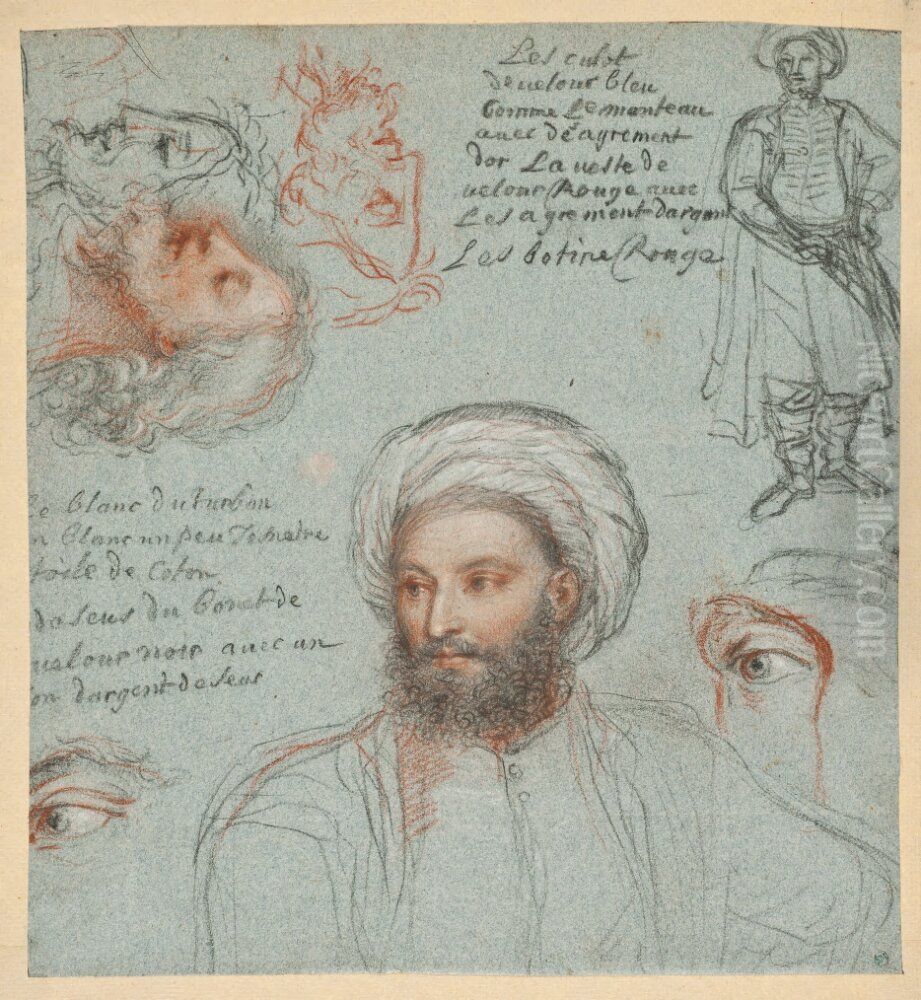 Les culot
de uelour bleu
Comme Le manteau
auec de agrement
dor La ueste de
uelour Rouge auec
Les agrement dargant
Les botine Rouge
Le blanc du turbon
n blanc un peu
toile de Coton
de seus du bonet de
uelour noir auec un
on dargent deseus